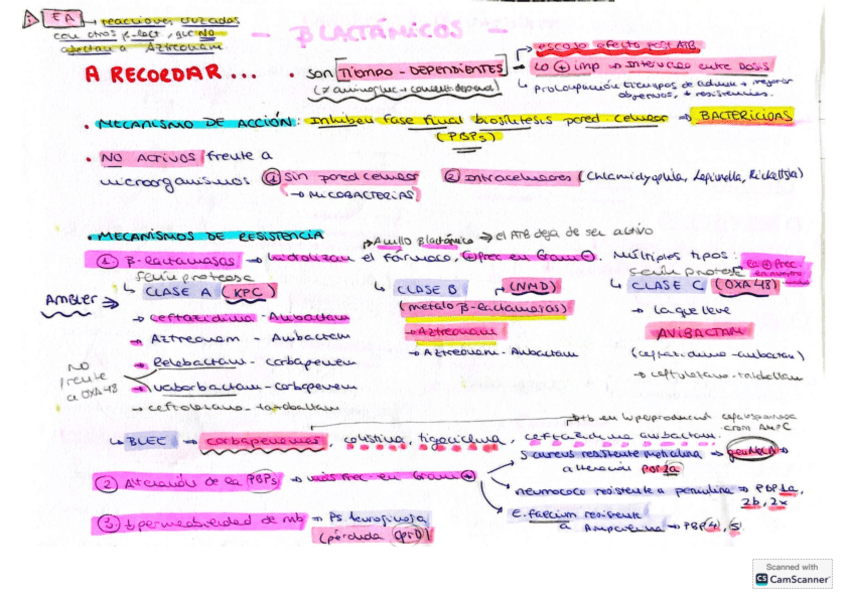 EA → reacciones cruzadas
con otros β-lact, que NO
afectan a Aztreonam
- β LACTÁMICOS -
A RECORDAR...
• SON TIEMPO-DEPENDIENTES
(≠ aminogluc → concent. depend)
→ escaso efecto post ATB
→ Lo ⊕ imp es intervalo entre dosis
↳ Prolongación tiempos de admin → mejorar
objetivos, ↓ resistencias.
• MECANISMO DE ACCIÓN: Inhiben fase final biosíntesis pared celular → BACTERICIDAS
(PBPs)
• NO ACTIVOS frente a
microorganismos ① Sin pared celular ② Intracelulares (Chlamidyophila, Legionella, Rickettsia)
(→ MICOBACTERIAS)
• MECANISMOS DE RESISTENCIA
→ Anillo βlactámico → el ATB deja de ser activo
① β-lactamasas → hidrolizan el fármaco, ⊕ frec en Gram ⊖. Múltiples tipos:
la ⊕ frec
en nuestro
serín proteasa
serín protease
Ambler ⇒
↳ CLASE A (KPC)
↳ CLASE B (NMD)
↳ CLASE C (OXA48)
(metalo β-lactamasas)
→ Ceftazidima - Avibactam
→ Aztreonam - Avibactam
→ Relebactam - carbapenem
→ Vaborbactam - carbapenem
→ ceftolozano - tazobactam
NO
frente
a OXA48
→ Aztreonam
→ Aztreonam - Avibactam
→ La que lleve
AVIBACTAM
(ceftazidima - avibactam)
→ ceftolozano - tazobactam
→ tb en hiperproducción cefalosporinasa
crom AMPC
↳ BLEE → carbapenemas, colistina, tigeciclina, ceftazidima avibactam.
② Alteración de la PBPs → más frec en Gram ⊕
S aureus resistente meticilina →
alteración PBP2a
neumococo resistente a penicilina → PBP 1a,
2b, 2x
E. faecium resistente
a Ampicilina → PBP4, 5
③ ↓ permeabilidad de mb → Ps aeruginosa
(pérdida OprD)
Scanned with
CS CamScanner